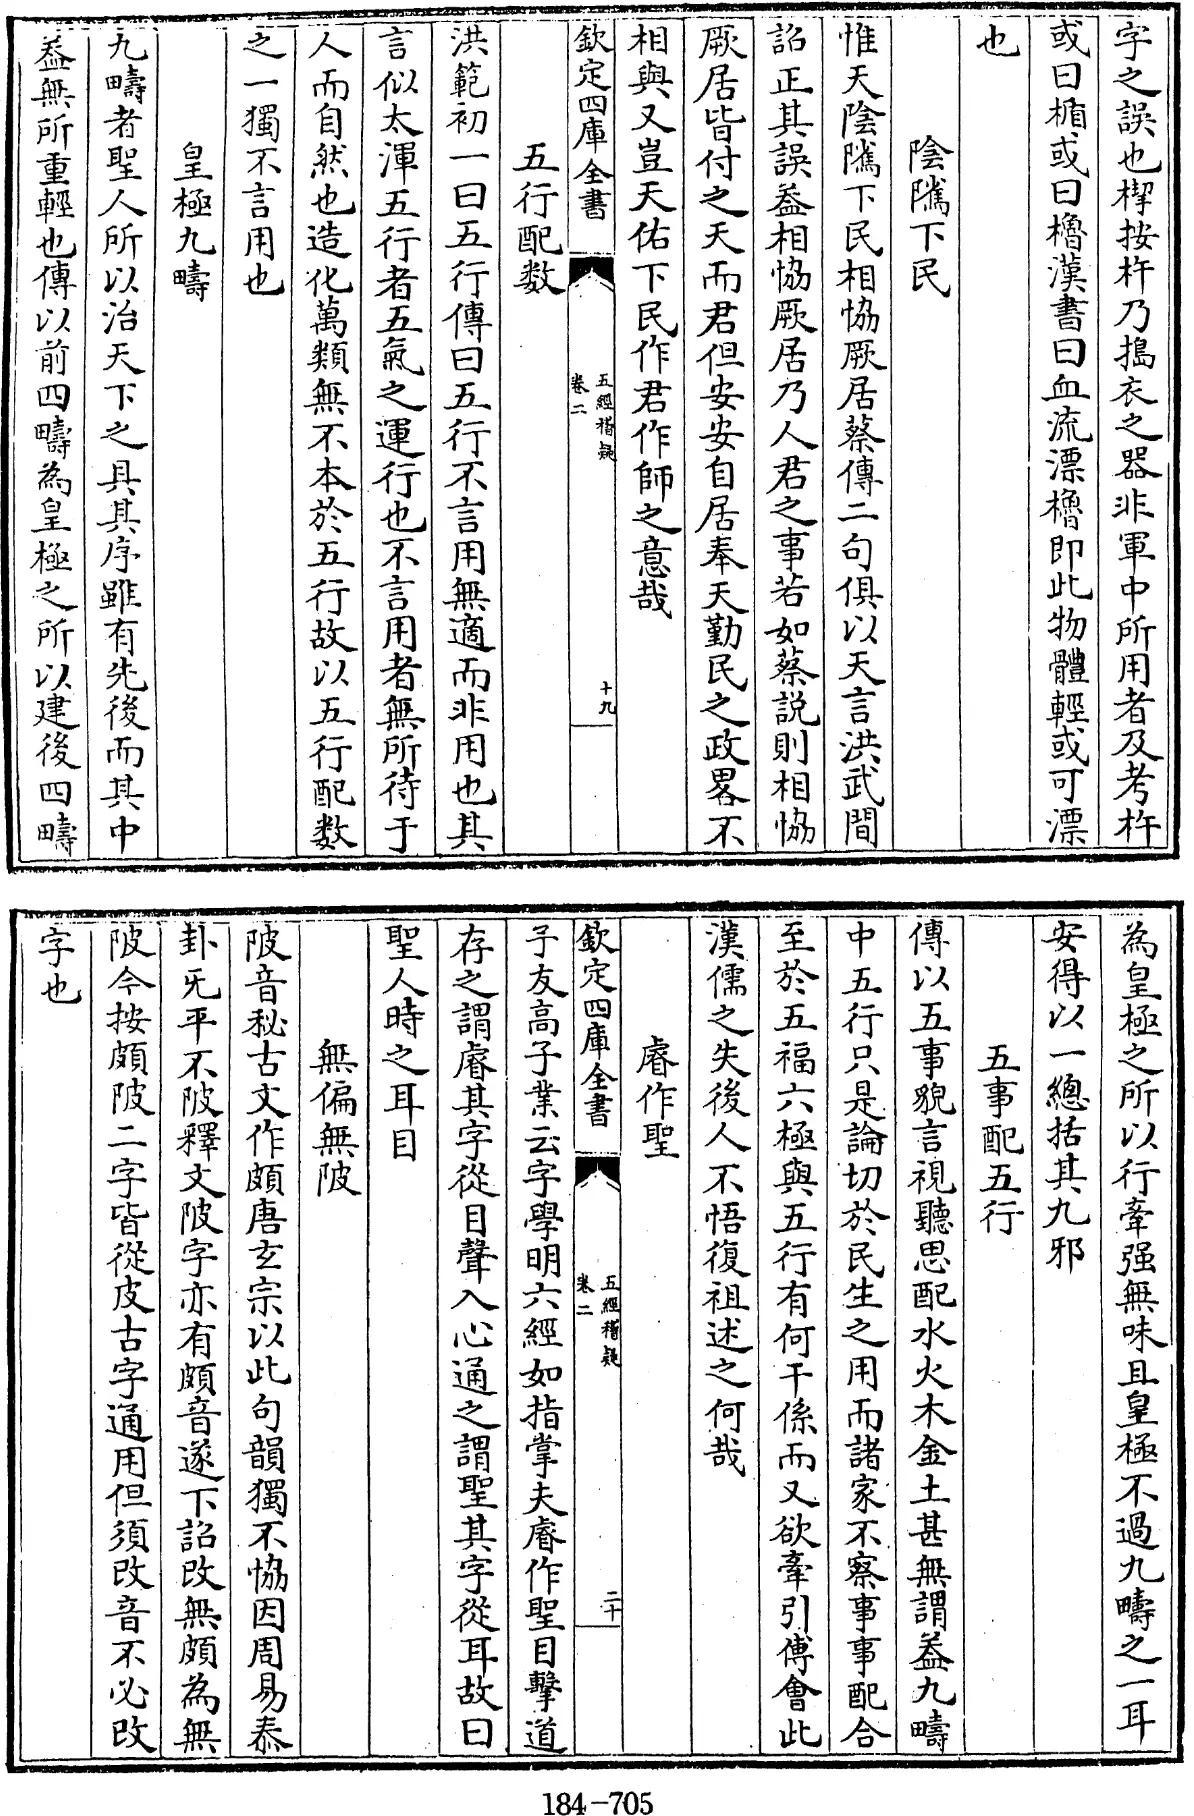 字之誤也楎按杵乃搗衣之器非軍中所用者及考杵
或曰楯或曰櫓漢書曰血流漂櫓即此物體輕或可漂
也
陰隲下民
惟天陰隲下民相恊厥居蔡傳二句俱以天言洪武間
詔正其誤葢相恊厥居乃人君之事若如蔡説則相恊
厥居皆付之天而君但安安自居奉天勤民之政畧不
相與又豈天佑下民作君作師之意哉
欽定四庫全書
五經稽疑
卷二
十九
五行配数
洪範初一曰五行傳曰五行不言用無適而非用也其
言似太渾五行者五氣之運行也不言用者無所待于
人而自然也造化萬類無不本於五行故以五行配数
之一獨不言用也
皇極九疇
九疇者聖人所以治天下之具其序雖有先後而其中
葢無所重輕也傳以前四疇為皇極之所以建後四疇
為皇極之所以行牽强無味且皇極不過九疇之一耳
安得以一總括其九邪
五事配五行
傳以五事貌言視聽思配水火木金土甚無謂葢九疇
中五行只是論切於民生之用而諸家不察事事配合
至於五福六極與五行有何干係而又欲牽引傅會此
漢儒之失後人不悟復祖述之何哉
睿作聖
欽定四庫全書
五經稽疑
卷二
二十
子友高子業云字學明六經如指掌夫睿作聖目擊道
存之謂睿其字從目聲入心通之謂聖其字從耳故曰
聖人時之耳目
無偏無陂
陂音秘古文作頗唐玄宗以此句韻獨不恊因周易泰
卦无平不陂釋文陂字亦有頗音遂下詔改無頗為無
陂今按頗陂二字皆從皮古字通用但須改音不必改
字也
184-705